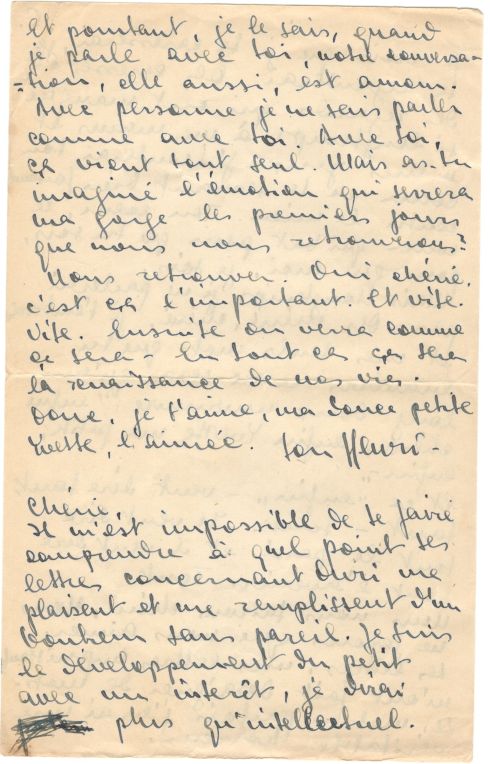 et pourtant, je le sais, quand
je parle avec toi, notre conversa-
tion, elle aussi, est amour.
Avec personne je ne sais parler
comme avec toi. Avec toi,
ça vient tout seul. Mais as-tu
imaginé l'émotion qui serrera
ma gorge les premiers jours
que nous nous retrouverons?
Nous retrouver. Oui chérie,
c'est ça l'important. Et vite.
Vite. Ensuite on verra comme
ce sera - En tout cas ça sera
la renaissance de nos vies.
Donc, je t'aime, ma douce petite
Yvette, l'aimée. Ton Henri
Chérie,
Il m'est impossible de te faire
comprendre à quel point tes
lettres concernant me
plaisent et me remplissent d'un
bonheur sans pareil. Je suis
le développement du petit
avec un intérêt, je dirai
plus qu'intellectuel.